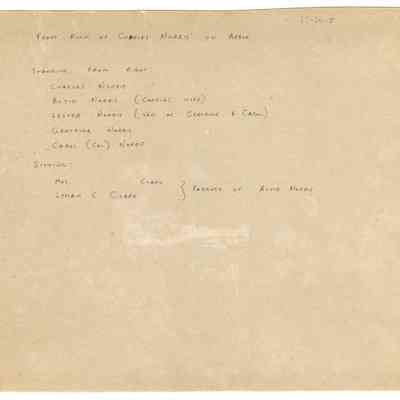 FRONT ROOM OF CHARLES NORRIS' ON
STANDING FROM RIGHT
CHARLES NORRIS
NORRIS (CHARLES WIFE)
LESTER NORRIS (SON OF & CAROL)
GERTRUDE NORRIS
CAROL (CAL) NORRIS
SITTING:
MRS. CLARK
LYMAN C. CLARK } PARENTS OF NORRIS